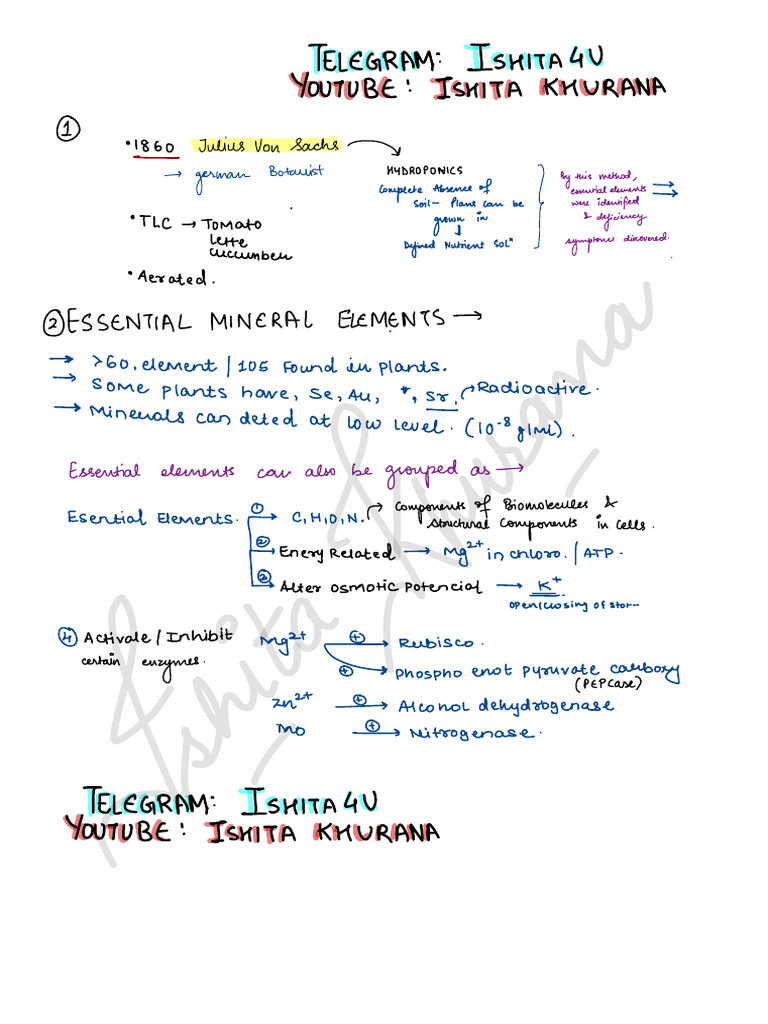 TELEGRAM: ISHITA 4U
YOUTUBE: ISHITA KHURANA
①
•1860 Julius Von Sachs
→ german Botanist
HYDROPONICS
Complete Absence of
Soil— Plants can be
grown in
↓
Defined Nutrient Solⁿ
By this method,
essential elements
were identified
& deficiency
symptoms discovered.
•TLC → TOMATO
Lette
cucumber
•Aerated.
② ESSENTIAL MINERAL ELEMENTS →
→ >60, element / 105 Found in plants.
→ Some plants have, Se, Au, *, Sr, Radioactive.
→ Minerals can deted at low level. (10⁻⁸ g/ml).
Essential elements can also be grouped as →
Esential Elements. ① → C,H,O,N. → Components of Biomolecules &
Structural Components in cells.
② → Enery Related → Mg²⁺ in chloro. / ATP.
③ → Alter osmotic Potencial → K⁺
open/closing of stom--
④ Activate / Inhibit
certain enzymes.
Mg²⁺ ⊕ → Rubisco.
⊕ → Phospho enol pyruvate carboxy
(PEPcase)
Zn²⁺ ⊕ → Alcohol dehydrogenase
Mo ⊕ → Nitrogenase.
Ishita Khurana
TELEGRAM: ISHITA 4U
YOUTUBE: ISHITA KHURANA